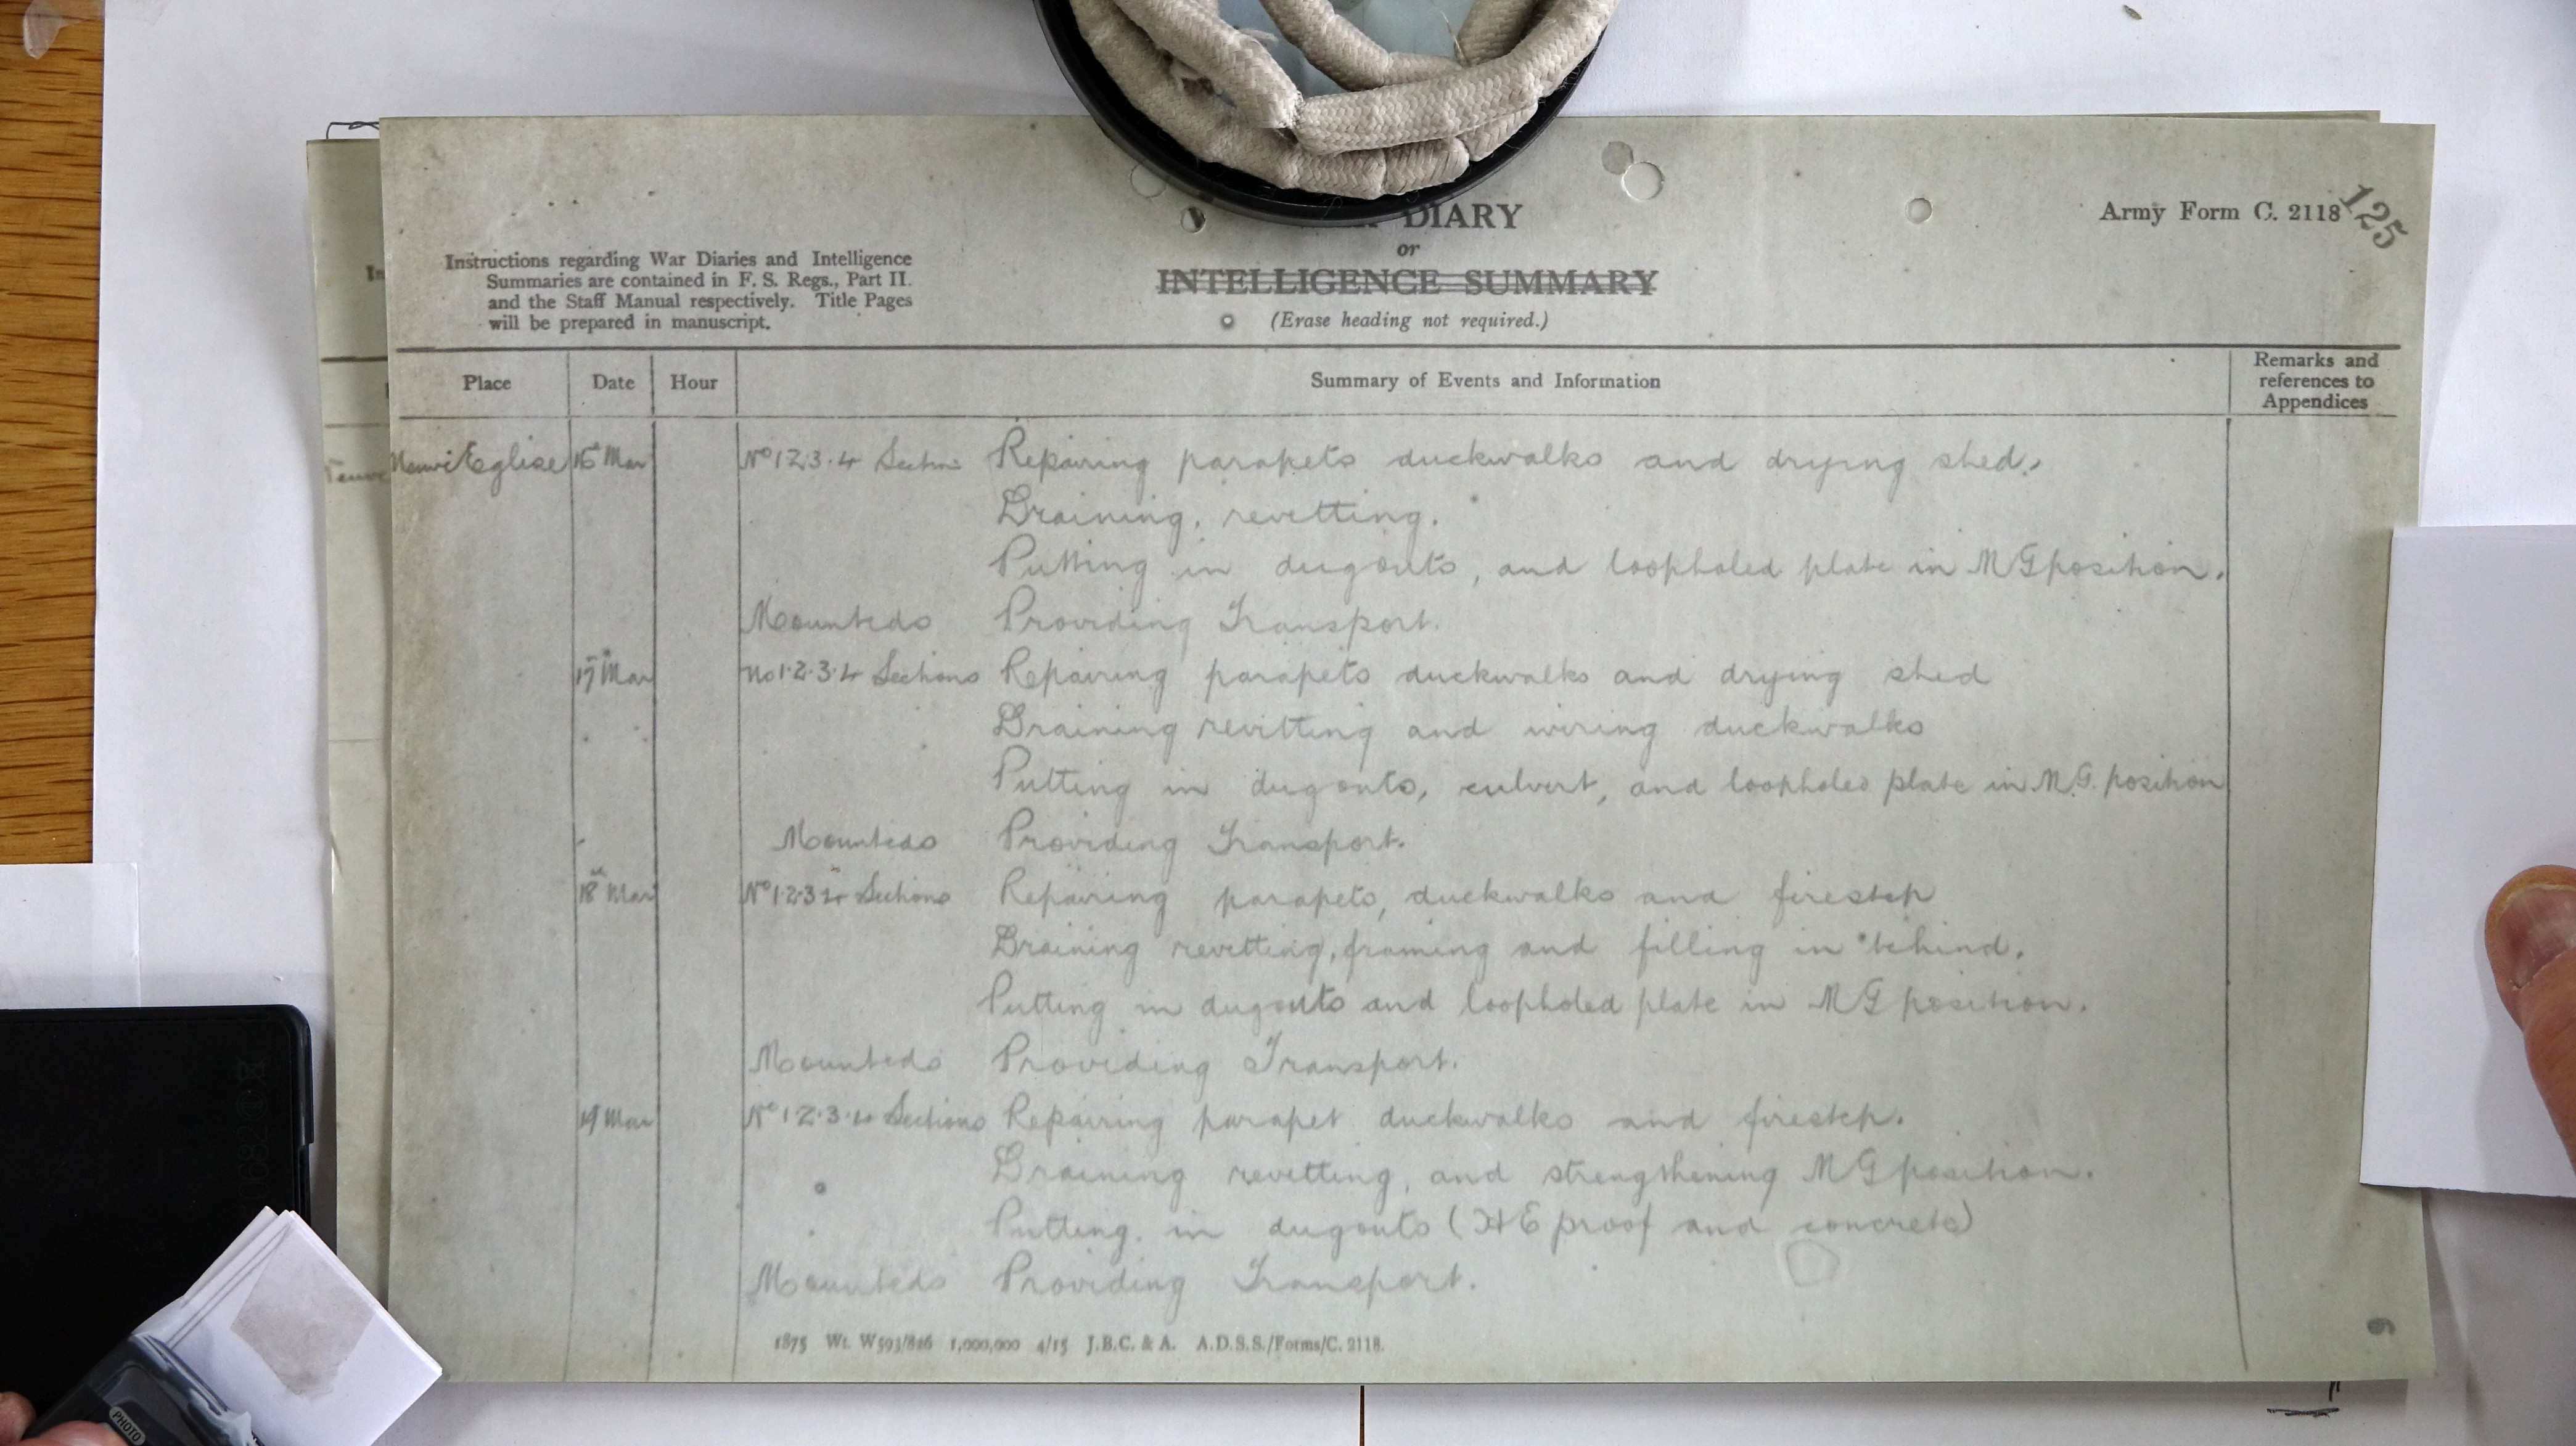 DIARY
or
INTELLIGENCE SUMMARY
(Erase heading not required.)
Army Form C. 2118
125
Instructions regarding War Diaries and Intelligence
Summaries are contained in F. S. Regs., Part II.
and the Staff Manual respectively. Title Pages
will be prepared in manuscript.
Place Date Hour Summary of Events and Information Remarks and references to Appendices
Eglise 16 Mar No 1 2.3.4 Sections Repairing parapets duckwalks and drying shed,
Draining, revetting.
Putting in dugouts, and loopholed plate in MG position.
Mounteds Providing Transport.
17th Mar No 1.2.3.4 Sections Repairing parapets duckwalks and drying shed
Draining revetting and wiring duckwalks
Putting in dugouts, culvert, and loopholed plate in M.G. position
Mounteds Providing Transport.
18th Mar No 1.2.3 4 Sections Repairing parapets, duckwalks and firestep
Draining revetting, framing and filling in behind.
Putting in dugouts and loopholed plate in MG position.
Mounteds Providing Transport.
19 Mar No 1.2.3.4 Sections Repairing parapet duckwalks and firestep.
Draining revetting, and strengthening MG position.
Putting in dugouts (HE proof and concrete)
Mounteds Providing Transport.
1875 Wt. W593/826 1,000,000 4/15 J.B.C. & A. A.D.S.S./Forms/C. 2118.
6
PHOTO